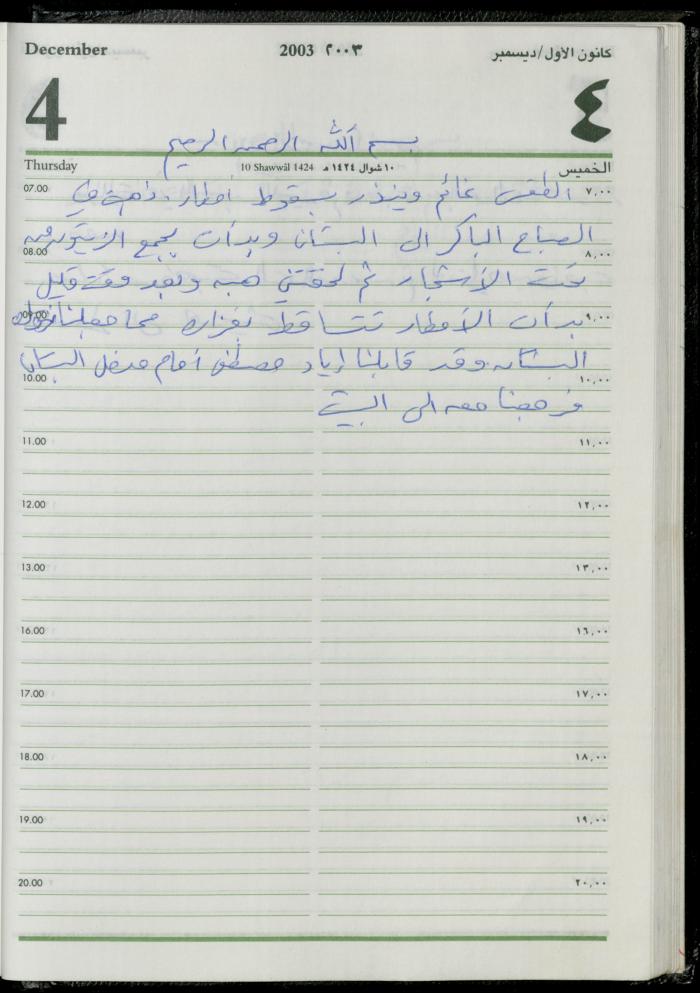 December 2003 ٢٠٠٣ كانون الأول/ديسمبر
4 ٤
بسم الله الرحمن الرحيم
Thursday 10 Shawwâl 1424 ١٠ شوال ١٤٢٤ هـ الخميس
07.00 ٧,٠٠
الطقس غائم وينذر بسقوط أمطار. ذهبت في
الصباح الباكر الى البستان وبدأت بجمع الزيتون من
08.00 ٨,٠٠
تحت الأشجار ثم لحقتني هبه وبعد وقت قليل
09.00 ٩,٠٠
بدأت الأمطار تتساقط بغزاره مما جعلنا
البستان وقد قابلنا إياد مصطفى أمام مدخل البستان
10.00 ١٠,٠٠
فرجعنا معه الى البيت
11.00 ١١,٠٠
12.00 ١٢,٠٠
13.00 ١٣,٠٠
16.00 ١٦,٠٠
17.00 ١٧,٠٠
18.00 ١٨,٠٠
19.00 ١٩,٠٠
20.00 ٢٠,٠٠